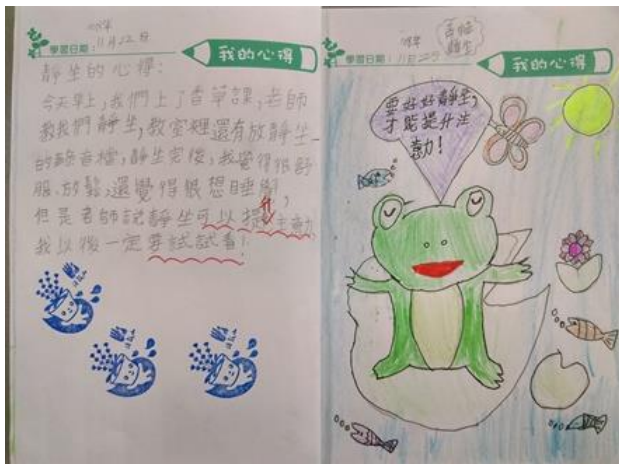 108年
學習日期:11月22日
我的心得
靜坐的心得:
今天早上,我們上了香草課,老師
教我們靜坐,教室裡還有放靜坐
的錄音檔,靜坐完後,我覺得很舒
服、放鬆,還覺得很想睡覺,
但是老師說靜坐可以提升注意力、
我以後一定要試試看!
108年
學習日期:11月22日
我的心得
要好好靜坐,
才能提升注
意力!